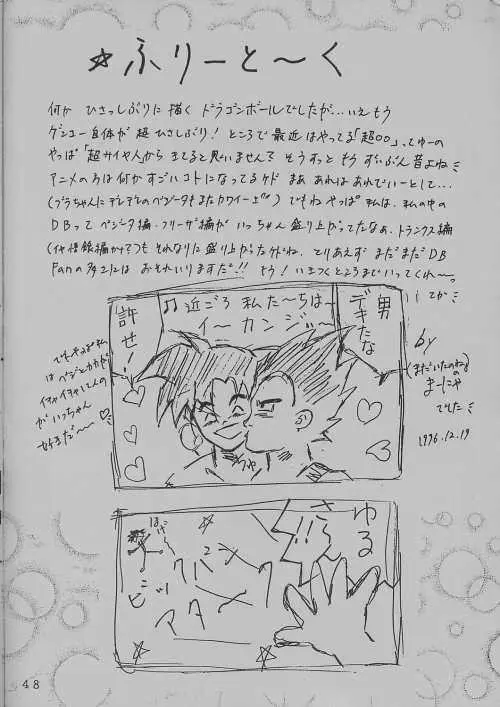 ☆ふりーと〜く
何か ひさっしぶりに描く ドラゴンボールでしたが…いえもう
ゲンコー自体が超ひさしぶり! ところで最近はやってる「超○○」、てゆーの
やっぱ「超サイヤ人」から きてると思いません? そうすっと もう ずいぶん昔よね
アニメの方は何かすごいコトになってるケド まあ あれはあれでいーとして…
(ブラちゃんにデレデレのベジータもまたカワイーゼ♡) でもね やっぱ 私は、私の中の
DBって ベジータ編・フリーザ編が いっちゃん盛り上がってたなぁ、トランクス編
も それなりに盛り上がったケドね、とりあえず まだまだDB
Fanの多さには おそれいりますだ!! もう! いきつくところまでいってくれ〜っ
てか
近ごろ 私た〜ちは〜
イ〜カンジ〜♪
男
デキたな
許せ!
でもやっぱ私
は ベジとカカが
イチャイチャしてんの
がいっちゃん
好きだ〜〜♡
by
(まだいたのね)
まーにゃ
でした
1996.12.19
ゆる
さん!!
48